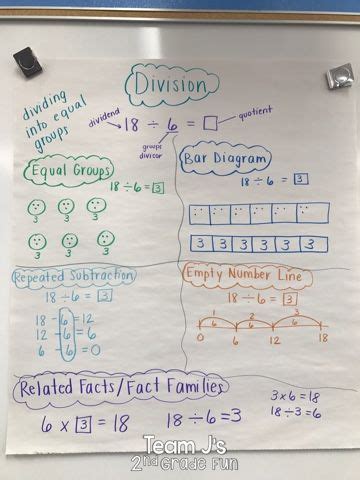 Division
dividing
into equal
groups
dividend
18 ÷ 6 = □
quotient
groups
divisor
Equal Groups
18 ÷ 6 = 3
3 3 3
3 3 3
Bar Diagram
18 ÷ 6 = 3
3 3 3 3 3 3
Repeated Subtraction
18 ÷ 6 = 3
18 - 6 = 12
12 - 6 = 6
6 - 6 = 0
Empty Number Line
18 ÷ 6 = 3
1 2 3
6 6 6
0 6 12 18
Related Facts/Fact Families
6 x 3 = 18
18 ÷ 6 = 3
3 x 6 = 18
18 ÷ 3 = 6
Team J's
2nd Grade Fun